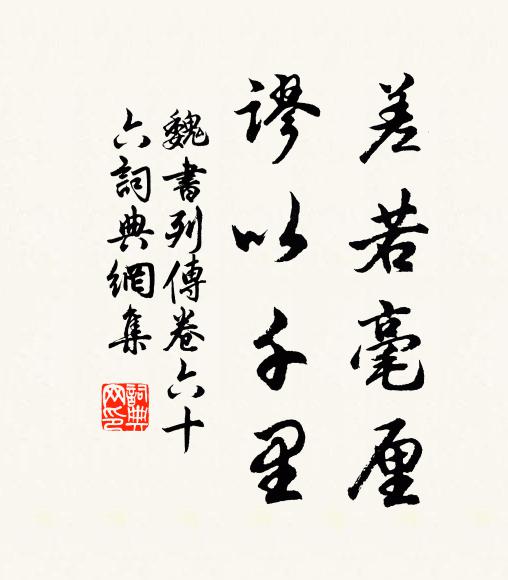 差若毫厘
谬以千里
魏書列傳卷六十
六詞典網集
詞典網印